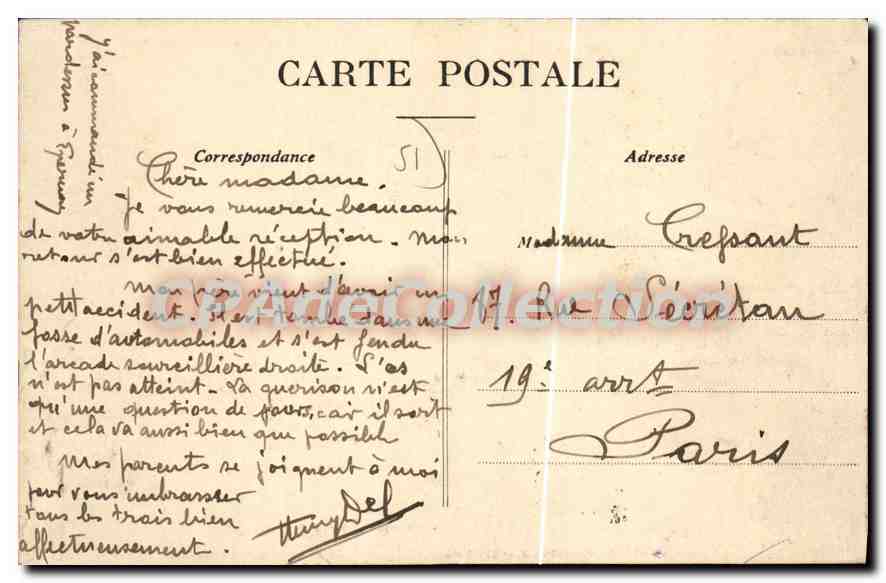 j'ai commandé un
pardessus à Epernay
CARTE POSTALE
Correspondance
51
Adresse
Chère madame.
Je vous remercie beaucoup
de votre aimable réception. Mon
retour s'est bien effectué.
Mon père vient d'avoir un
petit accident. Il est tombé dans une
fosse d'automobiles et s'est fendu
l'arcade sourcillière droite. L'os
n'est pas atteint. La guerison n'est
qu'une question de jours, car il sort
et cela va aussi bien que possible
Mes parents se joignent à moi
pour vous embrasser
tous les trois bien
affectueusement.
Henry Del
Madame Cressant
17. Rue Sécrétan
19e arrt
Paris
CPAdeCollection